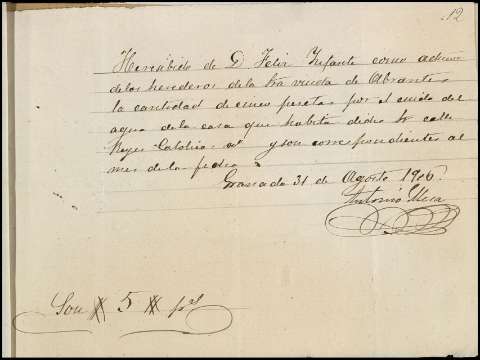 12
He resibido de D Felix Infante como admor
de los herederos de la Sra viuda de Abrantes
la cantidad de cinco pesetas por el cuido del
agua de la casa que habita dicho Sr calle
Reyes Catolicos y son correspondientes al
mes de la fecha
Granada 31 de Agosto 1906
Antonio
Son # 5 # pts